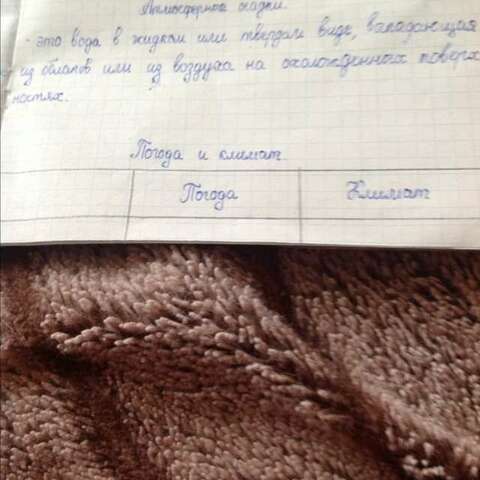 Атмосферные осадки.
- это вода в жидком или твердом виде, выпадающая
из облаков или из воздуха на охлажденных поверх
ностях.
Погода и климат
Погода Климат